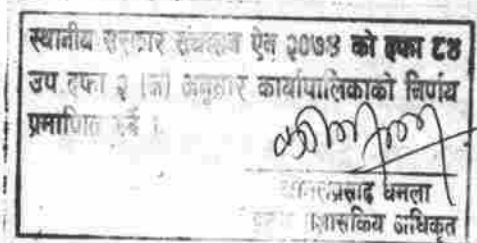 स्थानीय सरकार संचालन ऐन २०७४ को दफा ८४
उप दफा २ (क) अनुसार कार्यापालिकाको निर्णय
प्रमाणित गर्ने ।
धमला
प्रशासकिय अधिकृत